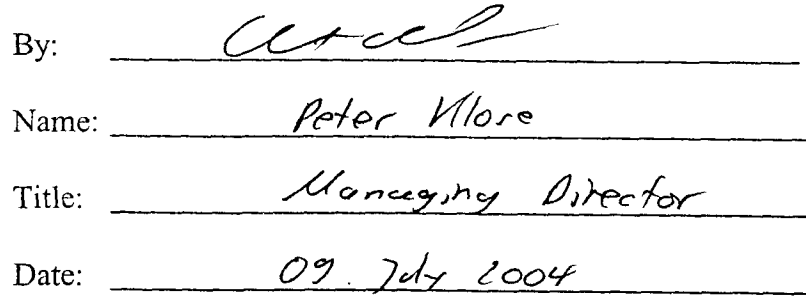 By:
Name: Peter Klose
Title: Managing Director
Date: 09. July 2004